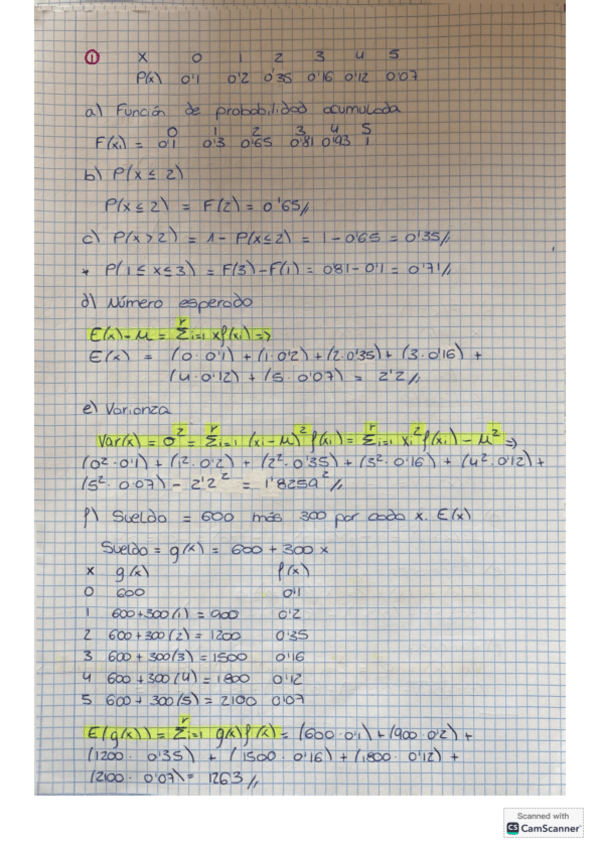 ① X 0 1 2 3 4 5
P(x) 0'1 0'2 0'35 0'16 0'12 0'07
a) Función de probabilidad acumulada
0 1 2 3 4 5
F(xi) = 0'1 0'3 0'65 0'81 0'93 1
b) P(x ≤ 2)
P(x ≤ 2) = F(2) = 0'65//
c) P(x > 2) = 1 - P(x ≤ 2) = 1 - 0'65 = 0'35//
* P(1 ≤ x ≤ 3) = F(3) - F(1) = 0'81 - 0'1 = 0'71//
d) Número esperado
E(x) - μ = Σ^r i=1 x f(xi) =>
E(x) = (0·0'1) + (1·0'2) + (2·0'35) + (3·0'16) +
(4·0'12) + (5·0'07) = 2'2//
e) Varianza
Var(x) = σ² = Σ^r i=1 (xi - μ)² f(xi) = Σ^r i=1 xi² f(xi) - μ² =>
(0²·0'1) + (1²·0'2) + (2²·0'35) + (3²·0'16) + (4²·0'12) +
(5²·0'07) - 2'2² = 1'8259²//
f) Sueldo = 600 más 300 por cada x. E(x)
Sueldo = g(x) = 600 + 300x
x g(x) f(x)
0 600 0'1
1 600+300(1) = 900 0'2
2 600+300(2) = 1200 0'35
3 600+300(3) = 1500 0'16
4 600+300(4) = 1800 0'12
5 600+300(5) = 2100 0'07
E(g(x)) = Σ^r i=1 g(x) f(x) = (600·0'1) + (900·0'2) +
(1200·0'35) + (1500·0'16) + (1800·0'12) +
(2100·0'07) = 1263//
Scanned with
CS CamScanner